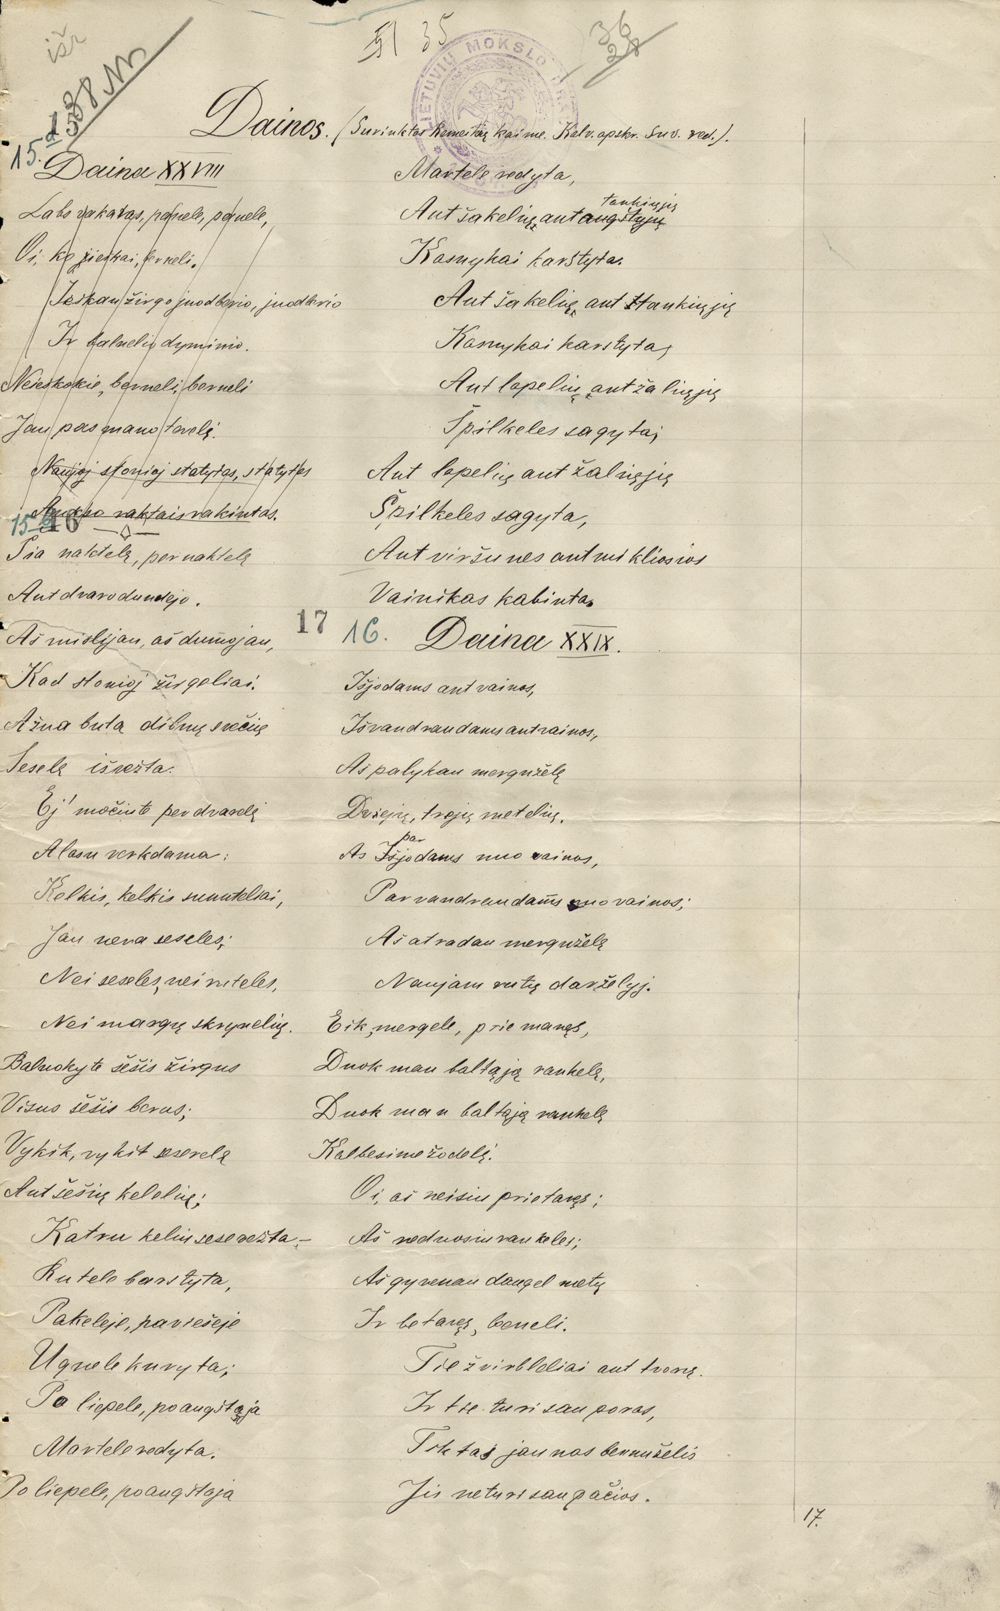 išr
35
36
138
LIETUVIŲ MOKSLO
Dainos. (Surinktos Kalv. apskr. Suv. red.).
15.a
Daina XXVIII
Labs vakaras, panele, panele,
Oi, ko jieškai, berneli.
Ieškau žirgo juodberio, juodberio
Ir balnelio dyminio.
Neieškokie, berneli, berneli
Jau pas mano tėvelį.
Naujoj stonioj statytas, statytas
raktais rakintas.
15 b 16
Šia naktelą, per naktelą
Ant dvaro dundėjo.
Aš mislijau, aš dumojau,
Kad stonioj žirgeliai.
Ažna buta dibnų svečių
Seselą išvežta.
Ej! močiutė per dvarelą
Alasu verkdama:
Kelkis, kelkis sunuteliai,
Jau nera seseles;
Nei seseles, nei ruteles,
Nei margų skrynelių.
Balnokyte šešis žirgus
Visus šešis berus;
Vykit, vykit seserelą
Ant šešių kelelių;
Katru keliu sese vežta –
Rutele barstyta,
Pakeleje, pavieseje
Ugnele kuryta;
Po liepele, po augštaja
Martele redyta.
Po liepele, po augštaja
Martele redyta,
tankiųjų
Ant šakelių, ant augštųjų
Kasnykai karstyta.
Ant šakelių, ant tankiųjų
Kasnykai karstyta,
Ant lapelių, ant žaliųjų
Špilkeles sagyta;
Ant lapelių ant žaliųjų
Špilkeles sagyta,
Ant viršunes ant mikliosios
Vainikas kabintas
17 16. Daina XXIX.
Išjodams ant vainos,
Išvandraudams ant vainos,
Aš palykau mergužėlą
Dvejų, trejų metelių.
par
Aš Išjodams nuo vainos,
Parvandraudams nuo vainos;
Aš atradau mergužėlą
Naujam rutų darželyj.
Eik, mergele, prie manęs,
Duok man baltąją rankelą,
Duok man baltąją rankelą
Kalbesime žodelį.
Oi, aš neisiu prie tavęs;
Aš neduosiu rankeles;
Aš gyvenau daugel metų
Ir be tavęs, berneli.
Tie žvirbleliai ant tvorų.
Ir tie turi sau poras,
Tik tas jaunas bernužėlis
Jis neturi sau pačios.
17.